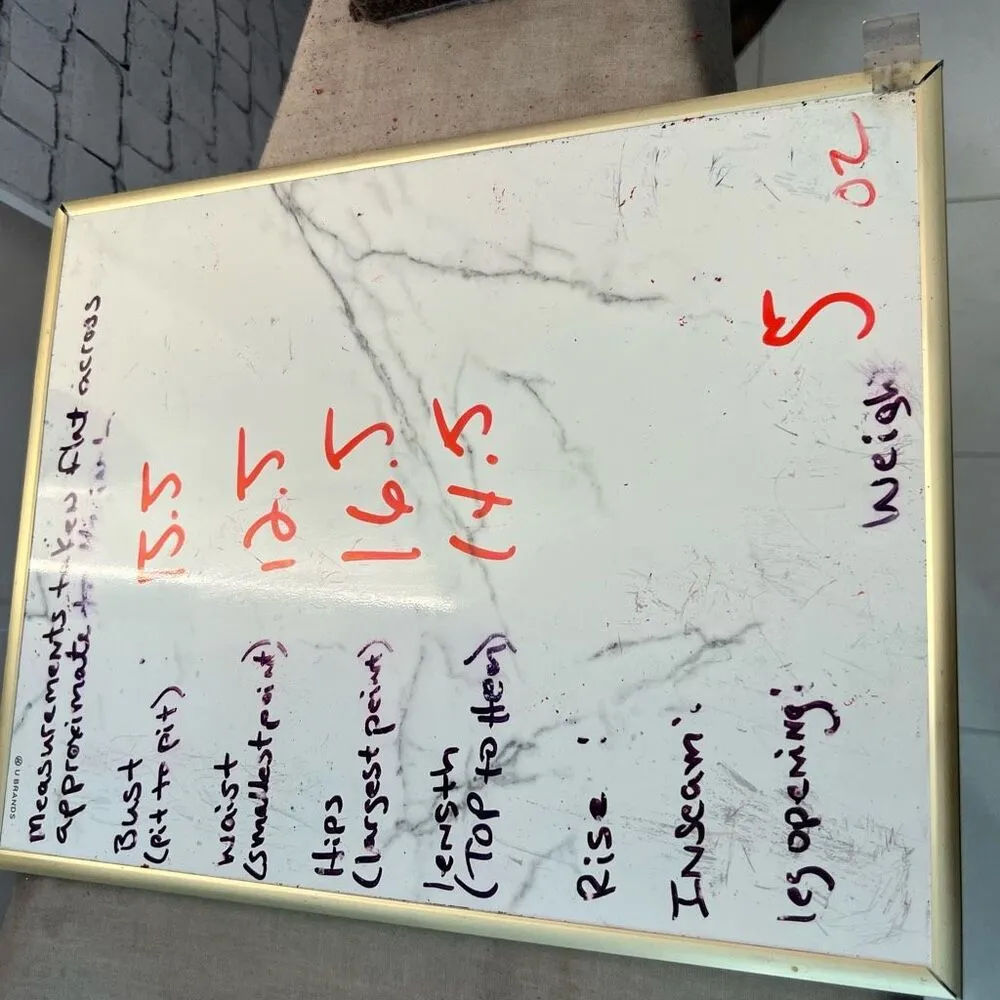 U BRANDS
Measurements taken flat across
approximate
Bust
(pit to pit) 15.5
Waist
(smallest point) 12.5
Hips
(largest point) 16.5
length
(TOP to Hem) 14.5
Rise:
Inseam:
leg opening:
Weigh 5 oz